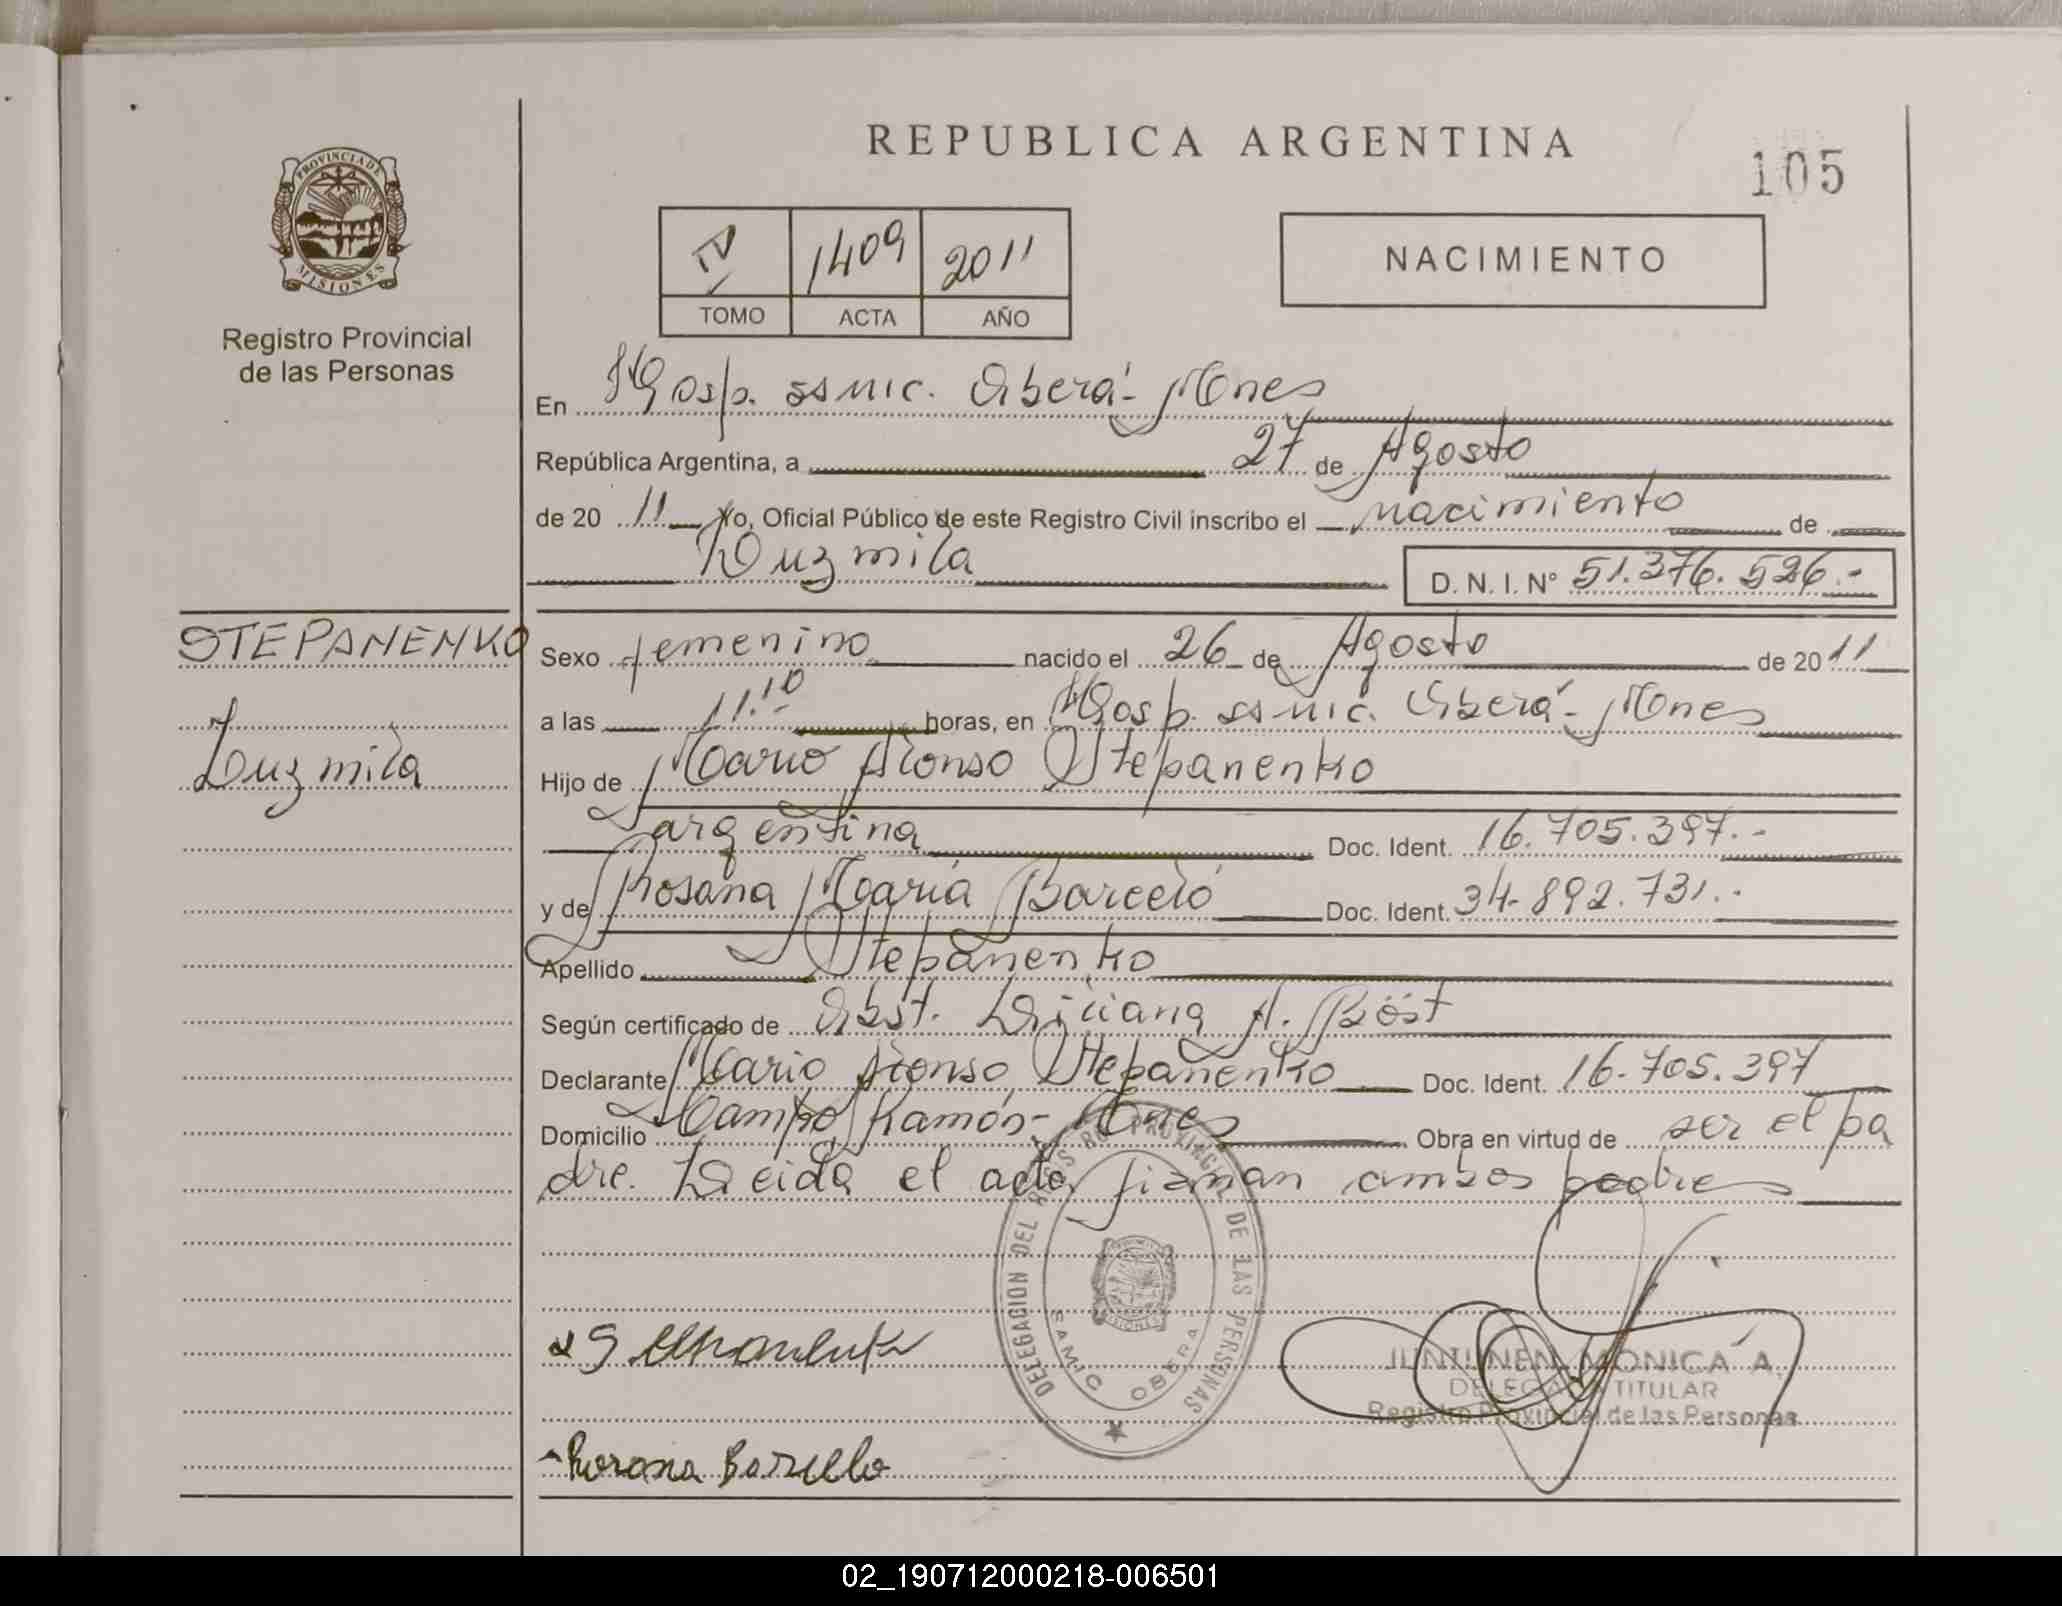 REPUBLICA ARGENTINA
105
PROVINCIA DE MISIONES
Registro Provincial
de las Personas
IV 1409 2011
TOMO ACTA AÑO
NACIMIENTO
En Hosp. samic. Oberá- Mnes
República Argentina, a 27 de Agosto
de 20 11 Yo, Oficial Público de este Registro Civil inscribo el nacimiento de
Luzmila D. N. I. Nº 51.376.526.-
STEPANENKO
Luzmila
Sexo femenino nacido el 26 de Agosto de 20 11
a las 11.10 horas, en Hosp. samic. Oberá- Mnes
Hijo de Mario Alonso Stepanenko
argentina Doc. Ident. 16.705.397.-
y de Rosana María Barceló Doc. Ident. 34.892.731.-
Apellido Stepanenko
Según certificado de Obst. Liliana A. Böst
Declarante Mario Alonso Stepanenko Doc. Ident. 16.705.397
Domicilio Campo Ramón- Mnes Obra en virtud de ser el pa
dre. Leida el acta firman ambos padres
DELEGACION DEL REGISTRO PROVINCIAL DE LAS PERSONAS
SAMIC OBERA
JUNTUNEN, MONICA A.
DELEGADA TITULAR
Registro Provincial de las Personas
Rosana Barcelo
02_190712000218-006501